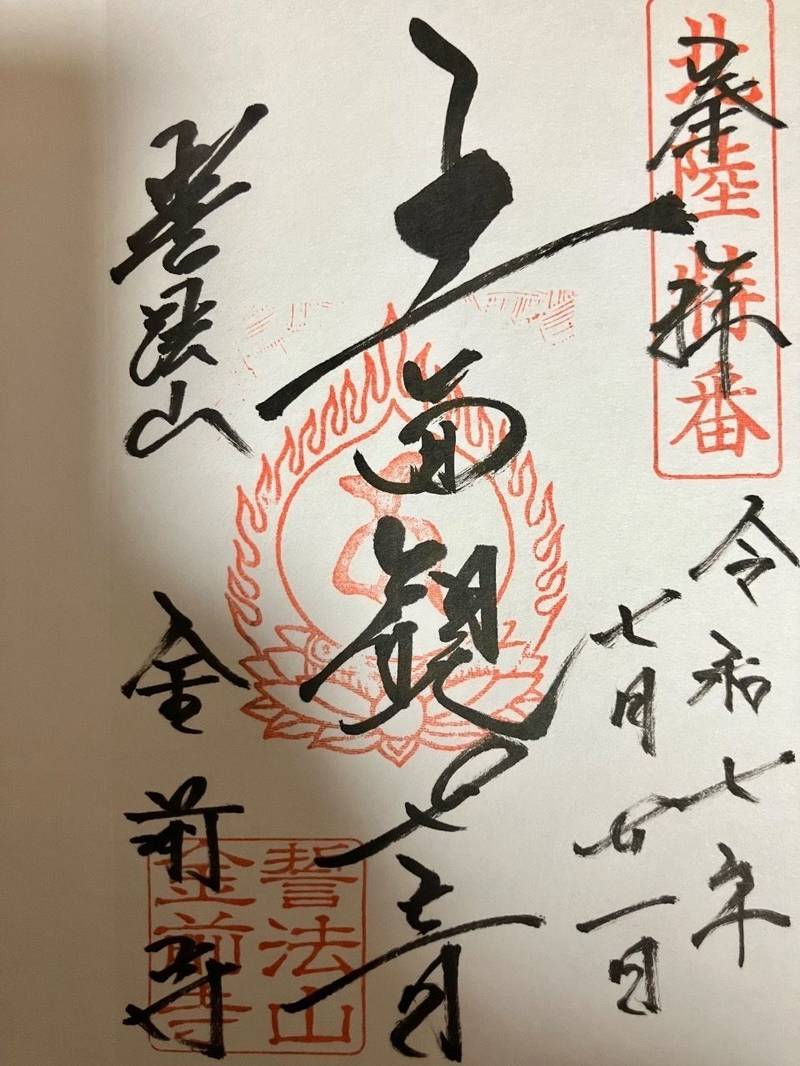 北陸特番
奉拝
令和七年
七月廿一日
十一面観世音
誓法山
金前寺
誓法山
金前寺